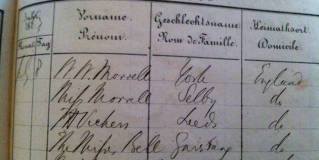 Vorname. Geschlechtsname Heimathsort
Prénom. Nom de Famille. Domicile.
Monat Tag
W. W. Morrell York England
Miss Morrell Selby do
Vickers Leeds do
The Misses Bell do